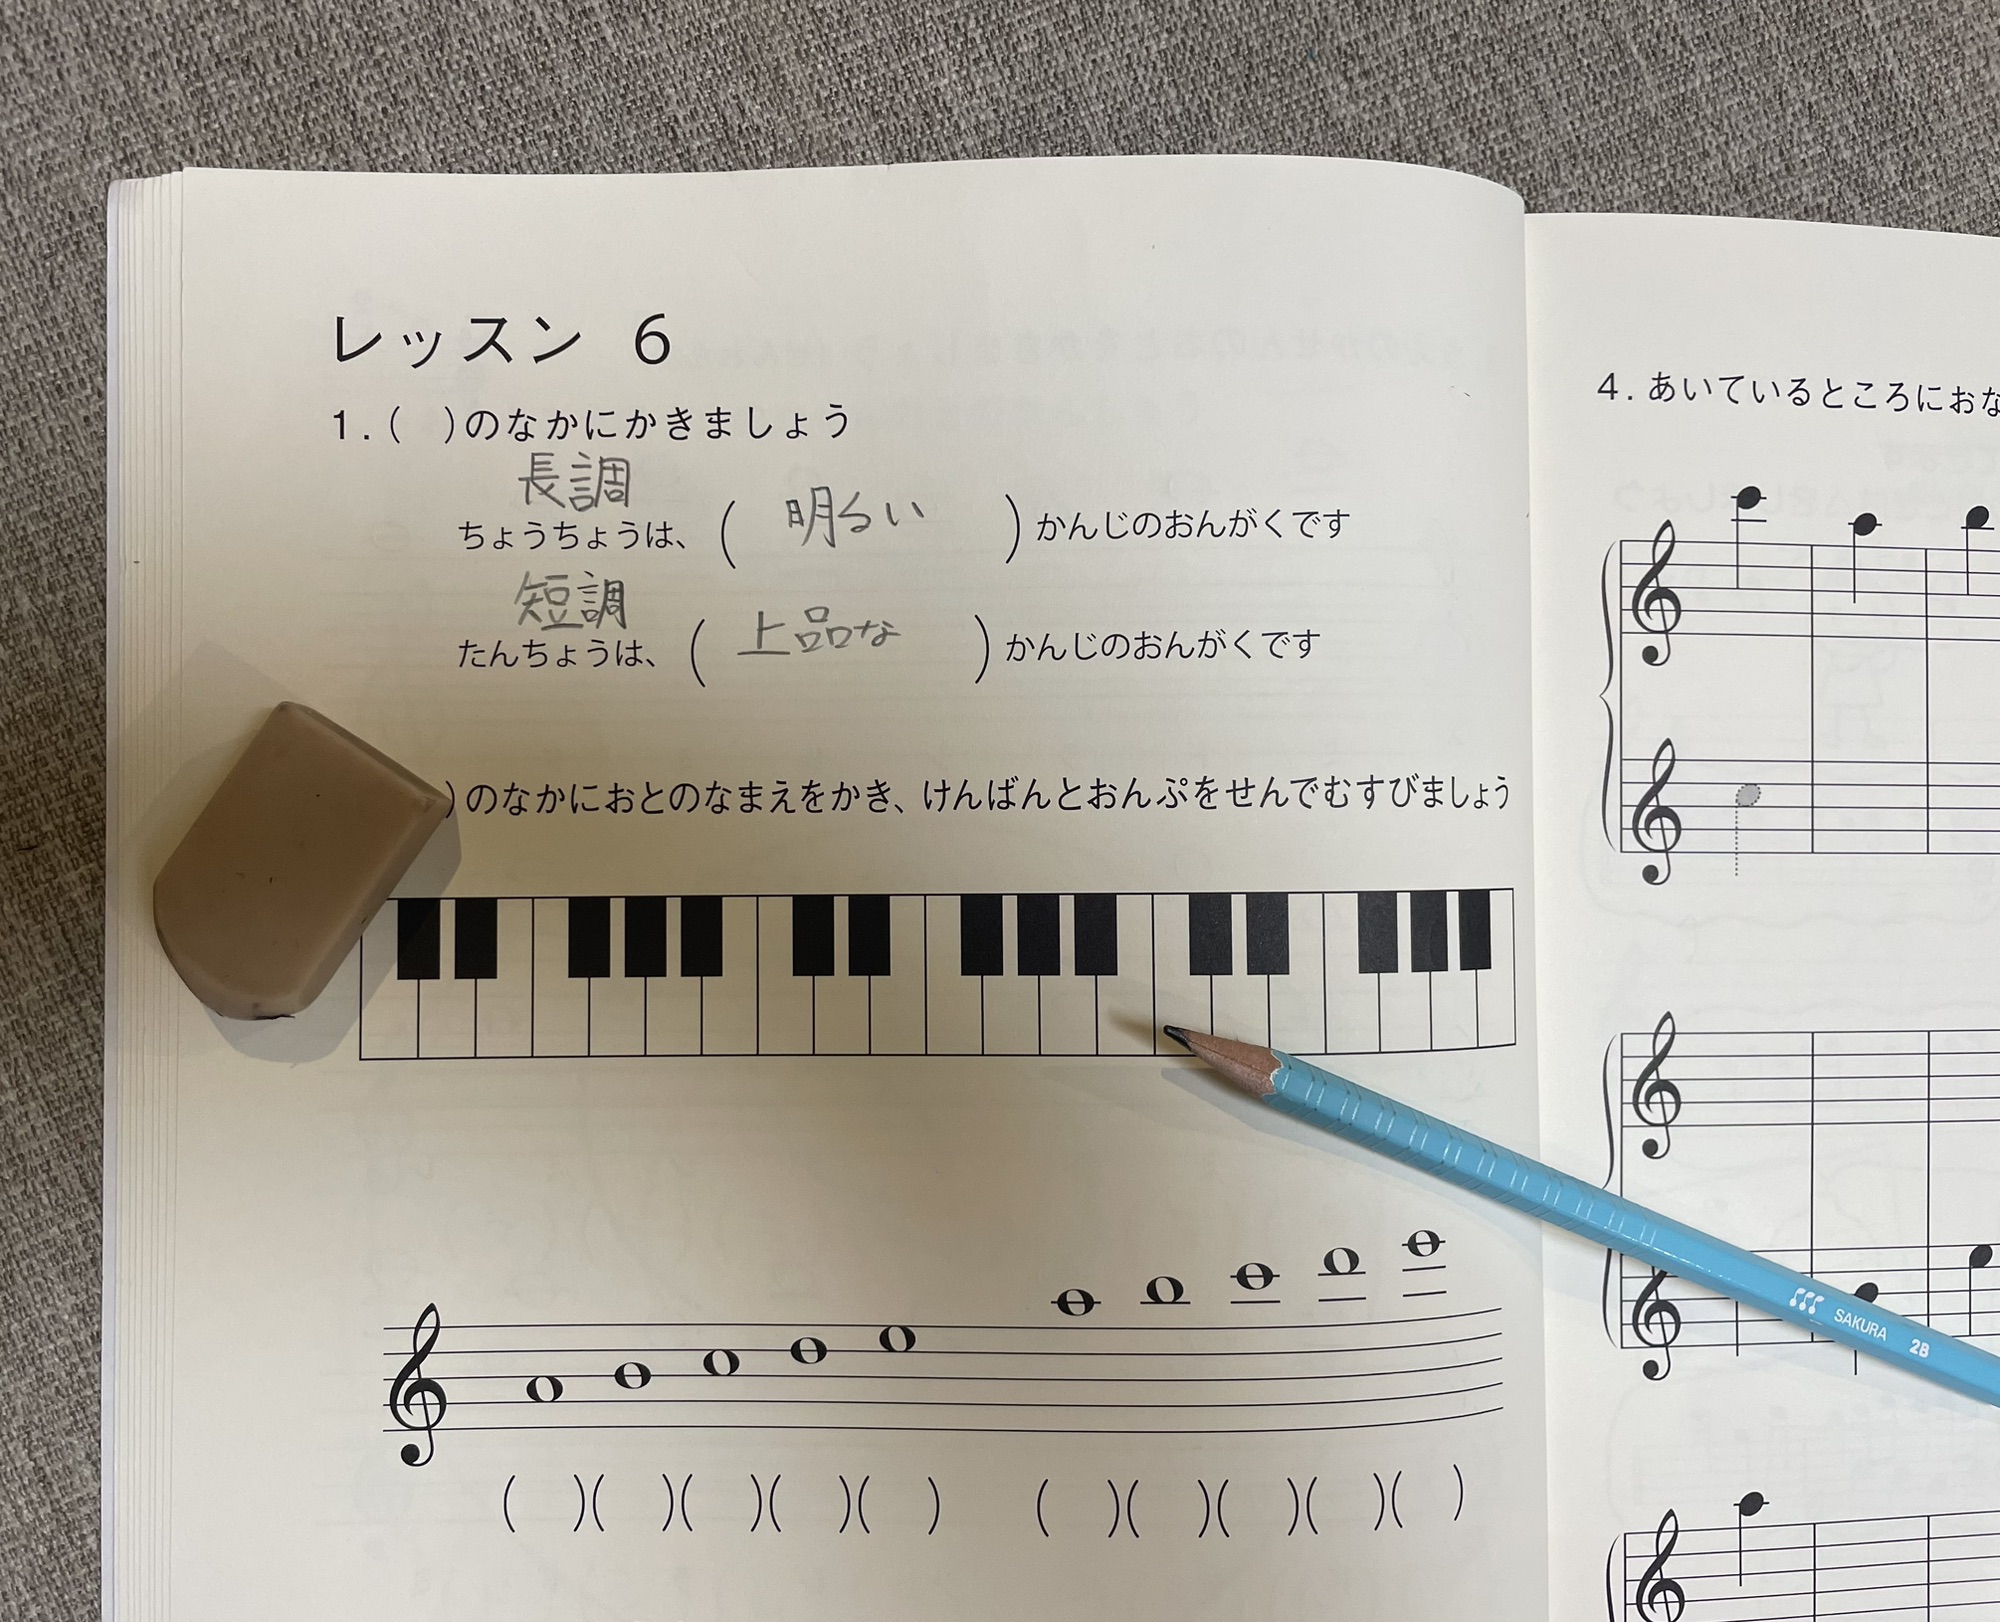 レッスン 6
1.( )のなかにかきましょう
長調
ちょうちょうは、( 明るい )かんじのおんがくです
短調
たんちょうは、( 上品な )かんじのおんがくです
)のなかにおとのなまえをかき、けんばんとおんぷをせんでむすびましょう
( )( )( )( )( ) ( )( )( )( )( )
4.あいているところにおな
SAKURA 2B